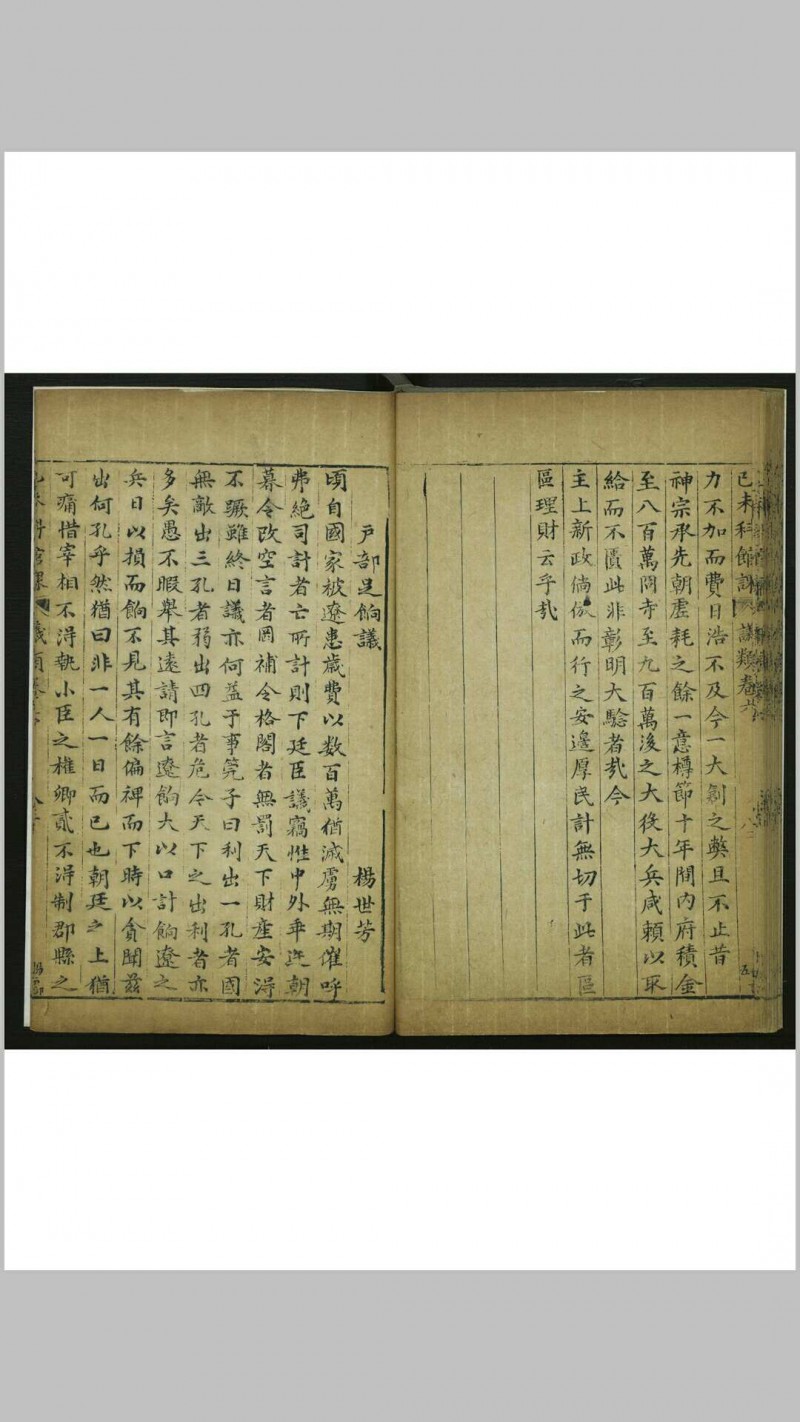 己未科館課 議類卷六
力不加而費日浩不及今一大創之弊且不止昔
神宗承先朝虛耗之餘一意樽節十年間內府積金
至八百萬冏寺至九百萬後之大役大兵咸賴以取
給而不匱此非彰明大驗者㢤今
主上新政倘倣而行之安邊厚民計無切于此者區
區理財云乎㢤
戶部足餉議 楊世芳
頃自國家被遼患歲費以数百萬猶滅虜無期催呼
弗絶司計者亡所計則下廷臣議竊惟中外率
朝
暮令改空言者罔補令格閣者無罰天下財産安得
不蹶雖終日議亦何益于事筦子曰利出一孔者國
無敵出二孔者弱出四孔者危今天下之出利者亦
多矣愚不暇舉其遠請即言遼餉大以口計餉遼之
兵日以損而餉不見其有餘偏裨而下時以貪聞茲
出何孔乎然猶曰非一人一日而已也朝廷之上猶
可痛惜宰相不得執小臣之權卿貳不得制郡縣之